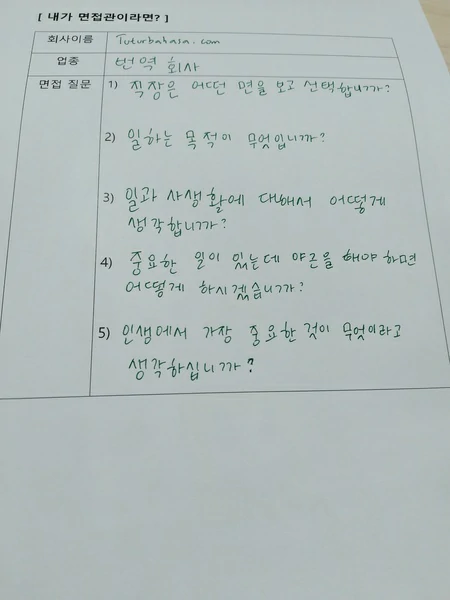 [ 내가 면접관이라면? ]
회사이름 Tuturbahasa.com
업종 번역 회사
면접 질문 1) 직장은 어떤 면을 보고 선택합니까?
2) 일하는 목적이 무엇입니까?
3) 일과 사생활에 대해서 어떻게
생각합니까?
4) 중요한 일이 있는데 야근을 해야 하면
어떻게 하시겠습니까?
5) 인생에서 가장 중요한 것이 무엇이라고
생각하십니까?